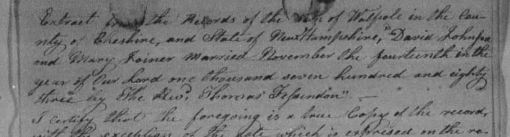 Extract from the Records of the Town of Walpole in the Cou-
nty of Cheshire, and State of New Hampshire, "David Johnson
and Mary Joiner married November the fourteenth in the
year of Our Lord one thousand seven hundred and eighty
three by The Revd. Thomas Fessenden" —
I certify that the foregoing is a true Copy of the record,
with the exception of the date which is expressed in the re-